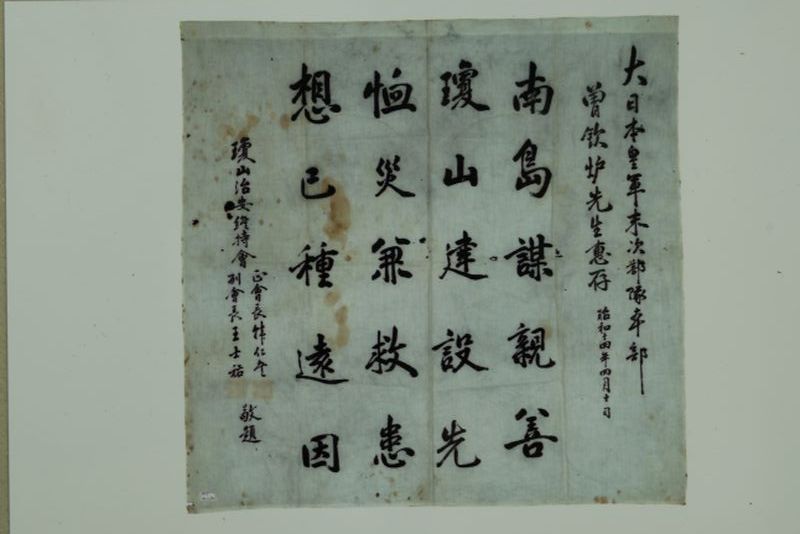 大日本皇軍末次部隊本部
曾欽炉先生惠存
昭和十四年四月十日
南島謀親善
瓊山建設先
恤災兼救患
想已種遠因
瓊山治安維持會
正會長韓仁
副會長王士裕
敬題